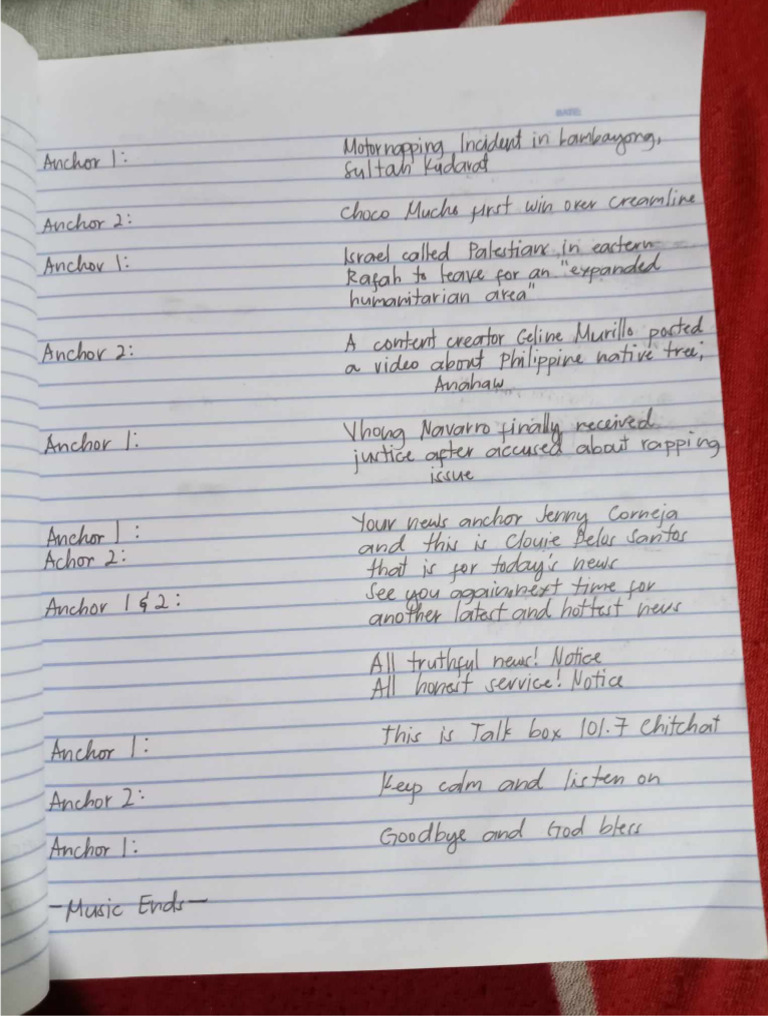 DATE:
Anchor 1: Motornapping Incident in Lambayong,
Sultan Kudarat
Anchor 2: Choco Mucho first win over Creamline
Anchor 1: Israel called Palestians in eastern
Rafah to leave for an "expanded
humanitarian area"
Anchor 2: A content creator Celine Murillo posted
a video about Philippine native tree,
Anahaw
Anchor 1: Vhong Navarro finally received
justice after accused about rapping
issue
Anchor 1: Your news anchor Jenny Corneja
Achor 2: and this is Clouie Delos Santos
that is for today's news
Anchor 1 & 2: See you again next time for
another latest and hottest news
All truthful news! Notice
All honest service! Notice
Anchor 1: This is Talk box 101.7 Chitchat
Anchor 2: Keep calm and listen on
Anchor 1: Goodbye and God bless
-Music Ends-